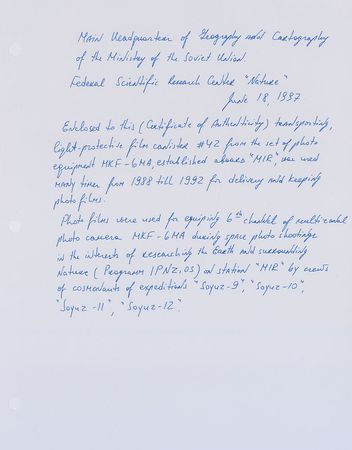 Main Headquarters of Geography and Cartography
of the Ministry of the Soviet Union.
Federal Scientific Research Center "Nature"
June 18, 1997
Enclosed to this (Certificate of Authenticity) transporting,
light-protective film canister #42 from the set of photo
equipment MKF-6MA, established aboard "MIR", was used
many times from 1988 till 1992 for delivery and keeping
photo films.
Photo films were used for equiping 6th channel of multizonal
photo camera MKF-6MA during space photo shootings
in the interests of researching the Earth and surrounding
Nature (Programm IPNZ, OS) on station "MIR" by crews
of cosmonauts of expeditions "Soyuz-9", "Soyuz-10",
"Soyuz-11", "Soyuz-12".